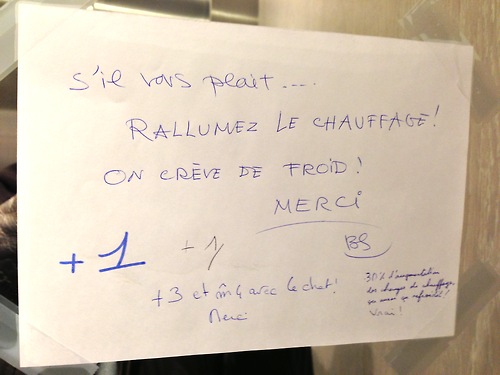 s'il vous plait....
RALLUMEZ LE CHAUFFAGE!
ON CRÈVE DE FROID!
MERCI
BS
+1 +1
+3 et m 4 avec le chat!
Merci
30% d'augmentation
des charges de chauffage,
ça aussi ça refroidit!
Vrai!